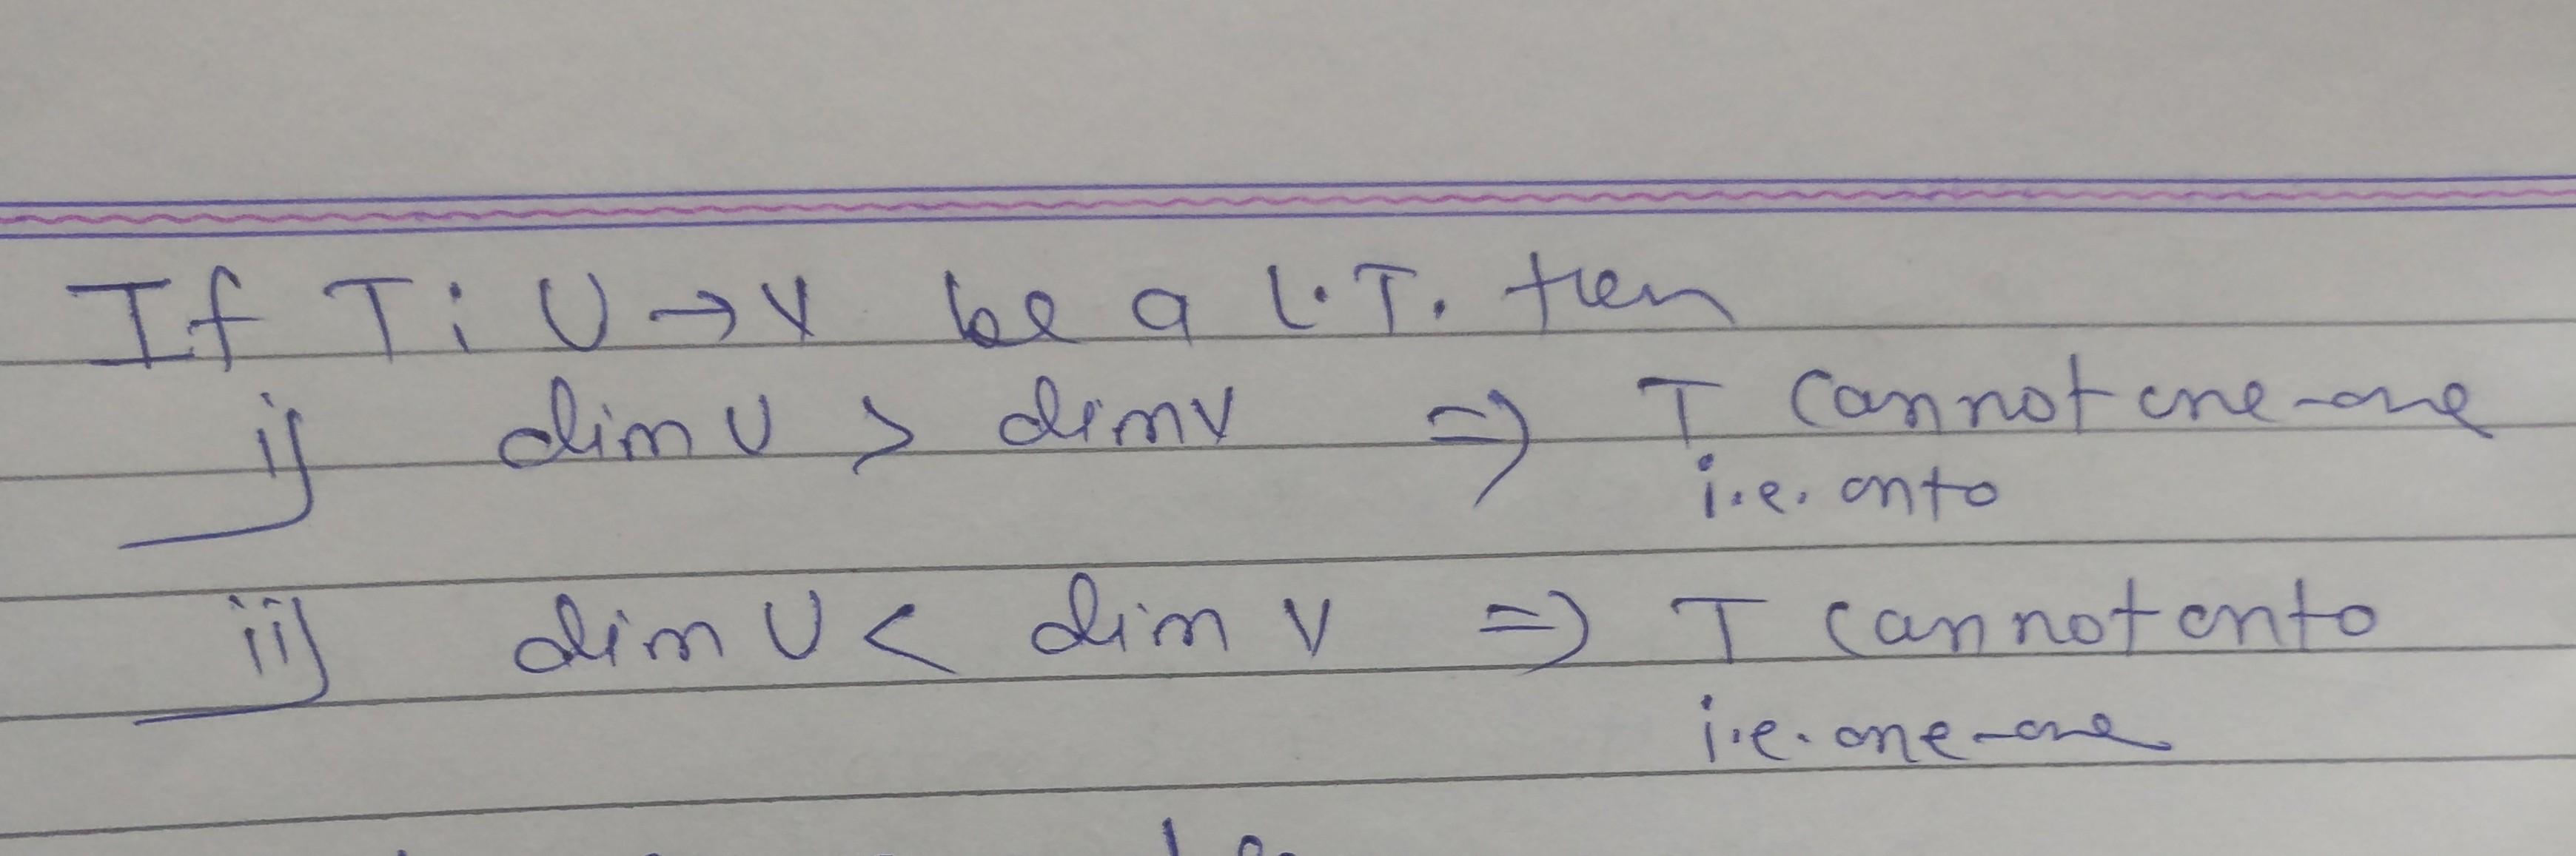 If T: U → V be a L.T. then
i) dim U > dim V ⇒ T cannot one-one
i.e. onto
ii) dim U < dim V ⇒ T cannot onto
i.e. one-one